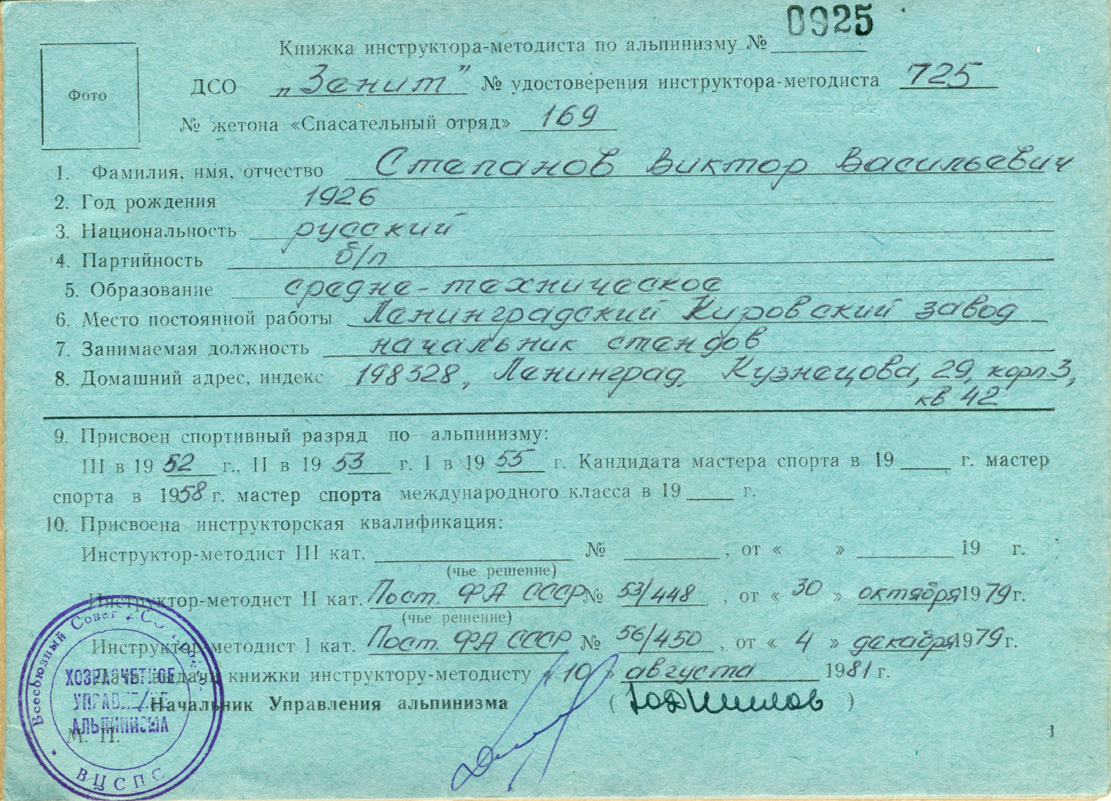 0925
Книжка инструктора-методиста по альпинизму №
Фото
ДСО „Зенит" № удостоверения инструктора-методиста 725
№ жетона «Спасательный отряд» 169
1. Фамилия, имя, отчество Степанов Виктор Васильевич
2. Год рождения 1926
3. Национальность русский
4. Партийность б/п
5. Образование средне-техническое
6. Место постоянной работы Ленинградский Кировский завод
7. Занимаемая должность начальник стендов
8. Домашний адрес, индекс 198328, Ленинград, Кузнецова, 29, корп 3,
кв 42
9. Присвоен спортивный разряд по альпинизму:
III в 1952 г., II в 1953 г. I в 1955 г. Кандидата мастера спорта в 19 г. мастер
спорта в 1958 г. мастер спорта международного класса в 19 г.
10. Присвоена инструкторская квалификация:
Инструктор-методист III кат. № , от « » 19 г.
(чье решение)
Инструктор-методист II кат. Пост. ФА СССР № 53/448, от « 30 » октября 1979 г.
(чье решение)
Инструктор-методист I кат. Пост. ФА СССР № 56/450, от « 4 » декабря 1979 г.
Дата выдачи книжки инструктору-методисту « 10 » августа 1981 г.
Начальник Управления альпинизма ( )
М. П.
Всесоюзный Совет ДСО
ХОЗРАСЧЕТНОЕ
УПРАВЛЕНИЕ
АЛЬПИНИЗМА
ВЦСПС
1